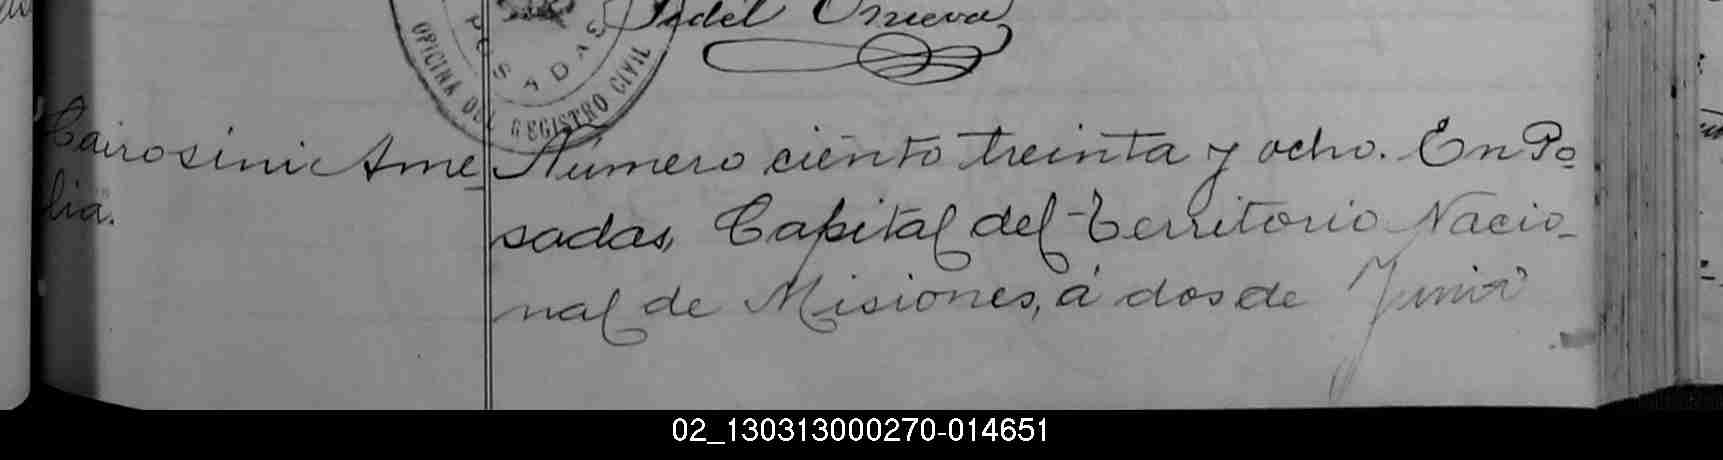 Fidel
POSADAS
OFICINA DEL REGISTRO CIVIL
Cairosini Ame-
lia.
Número ciento treinta y ocho. En Po-
sadas, Capital del Territorio Nacio-
nal de Misiones, á dos de Junio
02_130313000270-014651